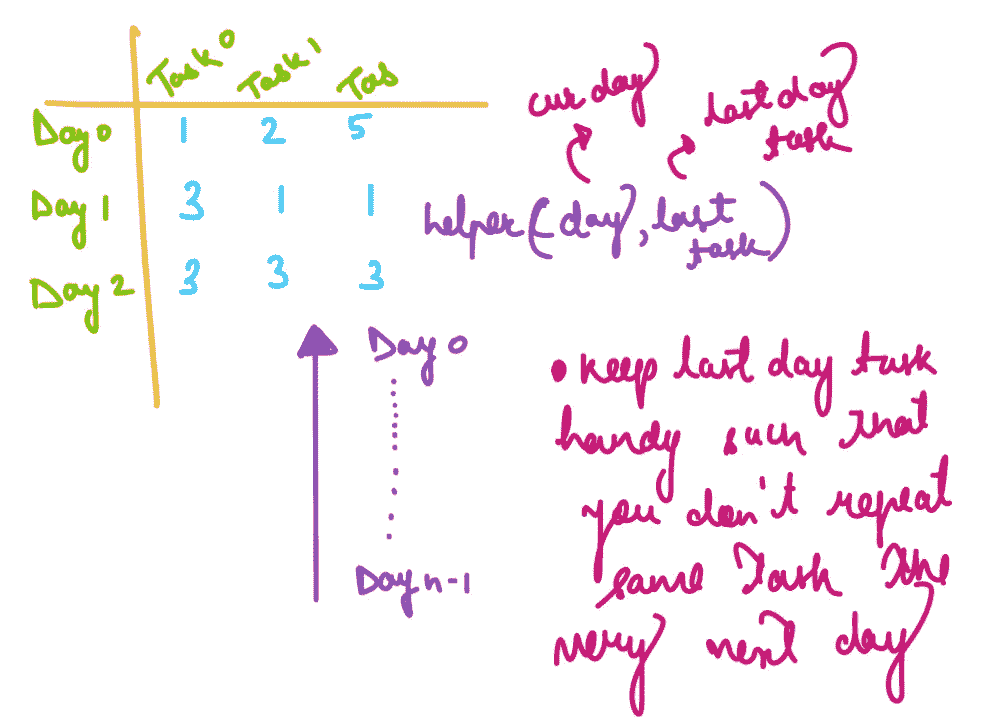 Task 0 Task 1 Tas
Day 0 1 2 5
Day 1 3 1 1
Day 2 3 3 3
cur day
last day
task
helper(day, last
task)
Day 0
Day n-1
• Keep last day task
handy such that
you don't repeat
same Task The
very next day